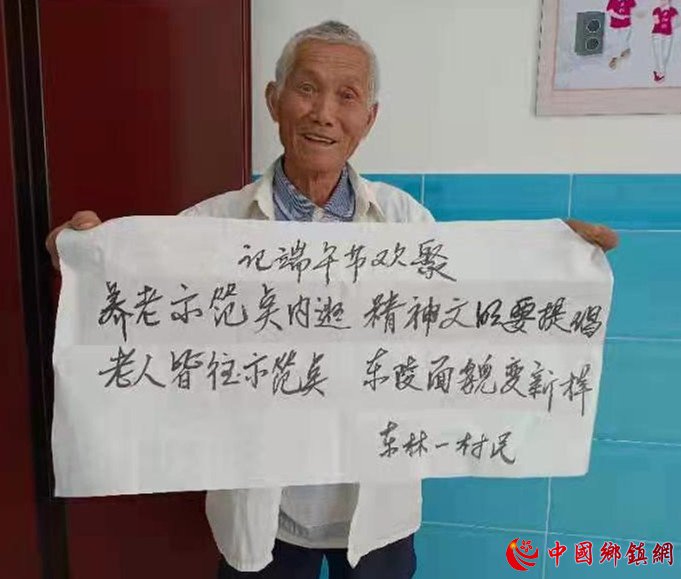 记端午节欢聚
养老示范点内逛 精神文明要提倡
老人皆往示范点 东陵面貌变新样
东林一村民
中國鄉鎮網